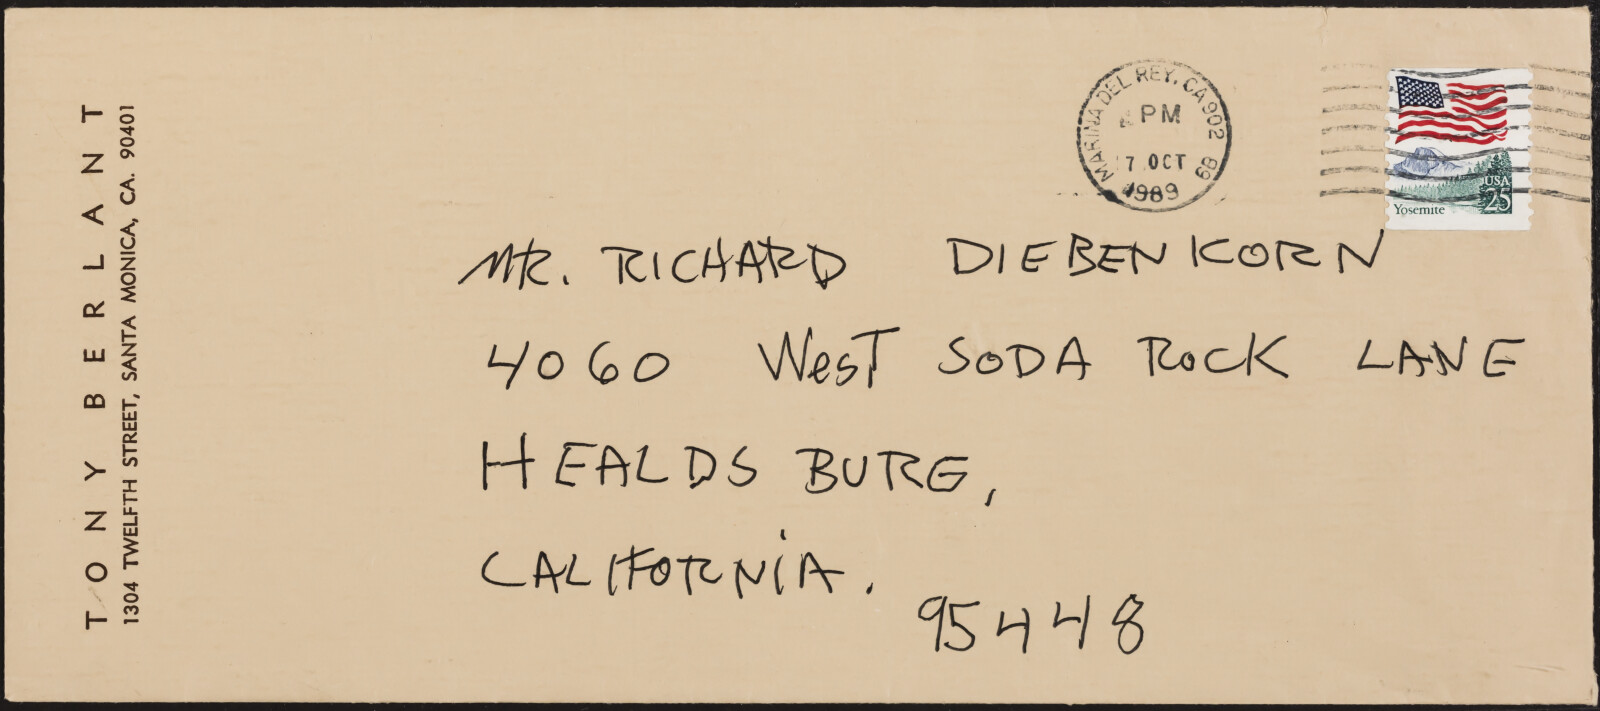 TONY BERLANT
1304 TWELFTH STREET, SANTA MONICA, CA. 90401
MARINA DEL REY, CA 902 #9
PM
7 OCT
1989
USA
25
Yosemite
MR. RICHARD DIEBENKORN
4060 West SODA ROCK LANE
HEALDSBURG,
CALIFORNiA.
95448